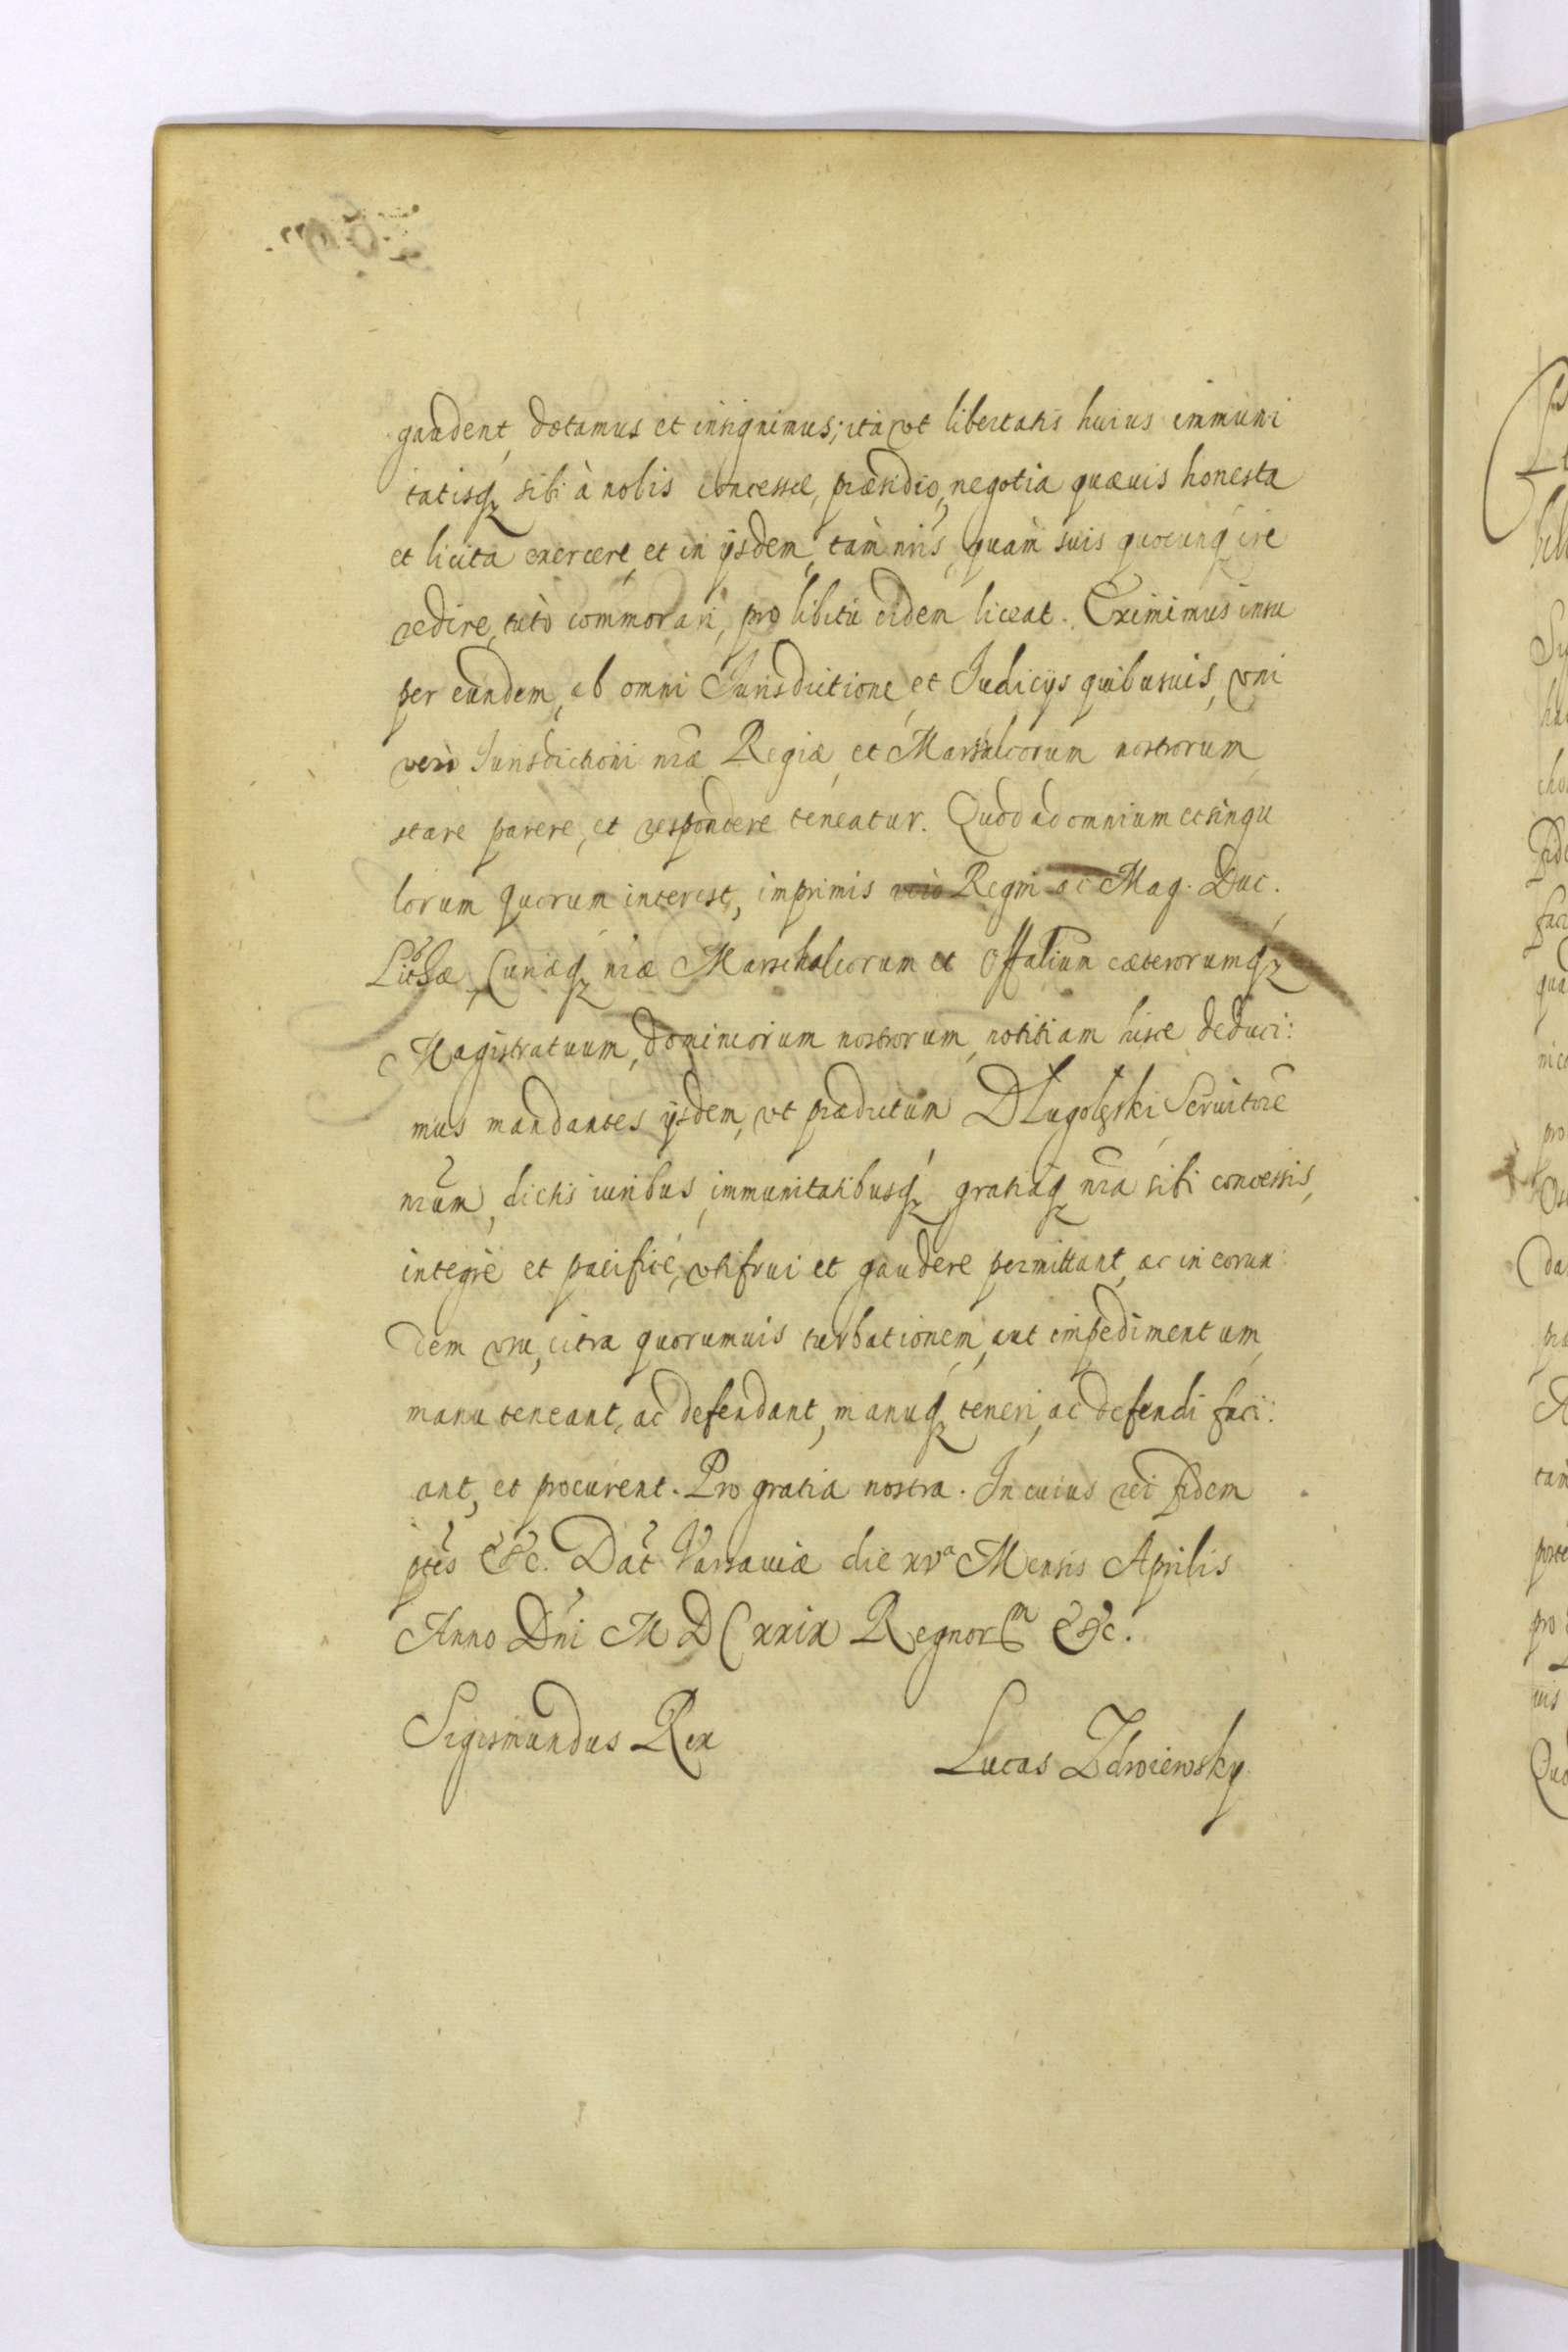 gaudent, dotamus et insignimus; ità vt libertatis huius immuni
tatisq; sibi à nobis concessæ, præsidio, negotia quæuis honesta
et licita exercere, et in ijsdem, tàm nris, quàm suis quocunq; ire
redire, tutò commorari, pro libitu eidem liceat. Eximimus insu
per eundem, ab omni Jurisdictione et Judicijs quibusuis, vni
verò Jurisdictioni nræ Regiæ, et Marsalcorum nostrorum
stare parere, et respondere teneatur. Quod ad omnium et singu
lorum quorum interest, imprimis verò Regni ac Mag. Duc.
Lithæ, Curiæq; nræ Marschalcorum et Offalium cæterorumq;
Magistratuum, dominiorum nostrorum, notitiam hisce deduci:
mus mandantes ijsdem, vt prædictum Dlugolęski Seruitore
nrum, dictis iuribus, immunitatibusq; gratiaq; nra sibi concessis,
integrè et pacificè, vti frui et gaudere permittant, ac in eorun
dem vsu, citra quorumuis turbationem, aut impedimentum
manu teneant, ac defendant, manuq; teneri, ac defendi faci:
ant, et procurent. Pro gratia nostra. In cuius rei fidem
ptes &c. Dat Varsauiæ die xvª Mensis Aprilis
Anno Dni MDCxxix Regnorm &c.
Sigismundus Rex
Lucas Zdroiewsky